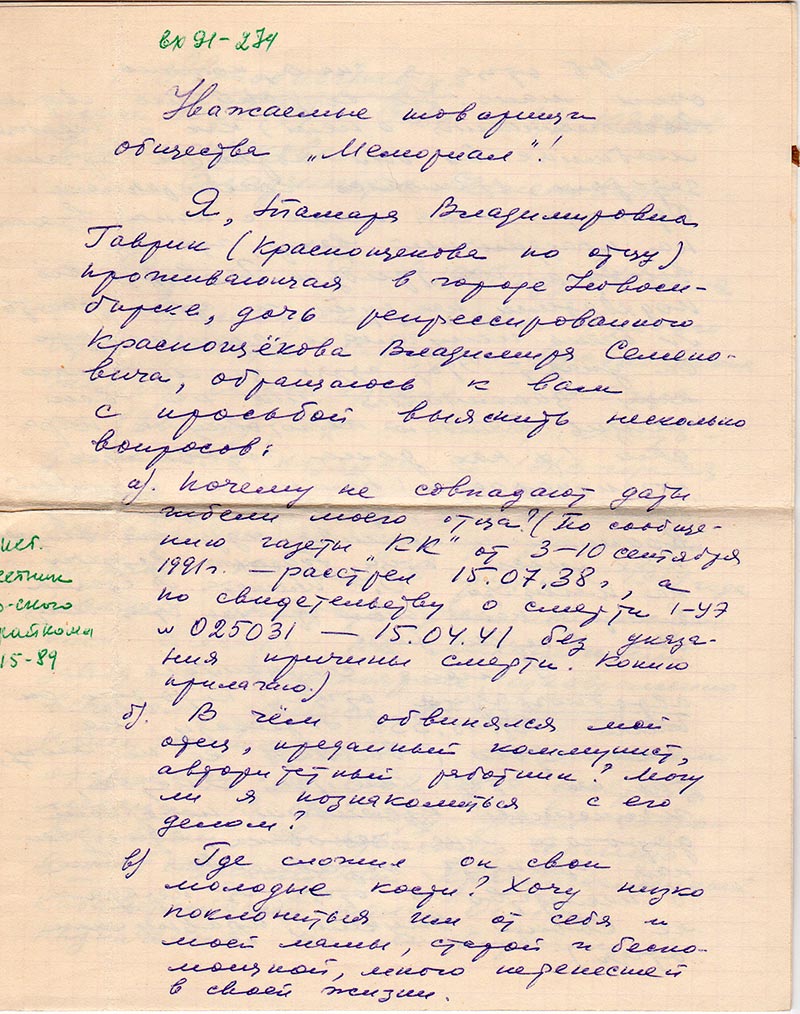 вх 91-274
Уважаемые товарищи
общества „Мемориал"!
Я, Тамара Владимировна
Гаврик (Краснощекова по отцу)
проживающая в городе Новоси-
бирске, дочь репрессированного
Краснощёкова Владимира Семено-
вича, обращаюсь к вам
с просьбой выяснить несколько
вопросов:
а). Почему не совпадают даты
гибели моего отца? (По сообще-
нию газеты „КК" от 3-10 сентября
1991г. — расстрел 15.07.38г, а
по свидетельству о смерти 1-УЧ
№ 025031 — 15.04.41 без указа-
ния причины смерти. Копию
прилагаю.)
б). В чём обвинялся мой
отец, преданный коммунист,
авторитетный работник? Могу
ли я познакомиться с его
делом?
в) Где сложил он свои
молодые кости? Хочу низко
поклониться им от себя и
моей мамы, старой и беспо-
мощной, много перенесшей
в своей жизни.
-ского
райкома
15-89